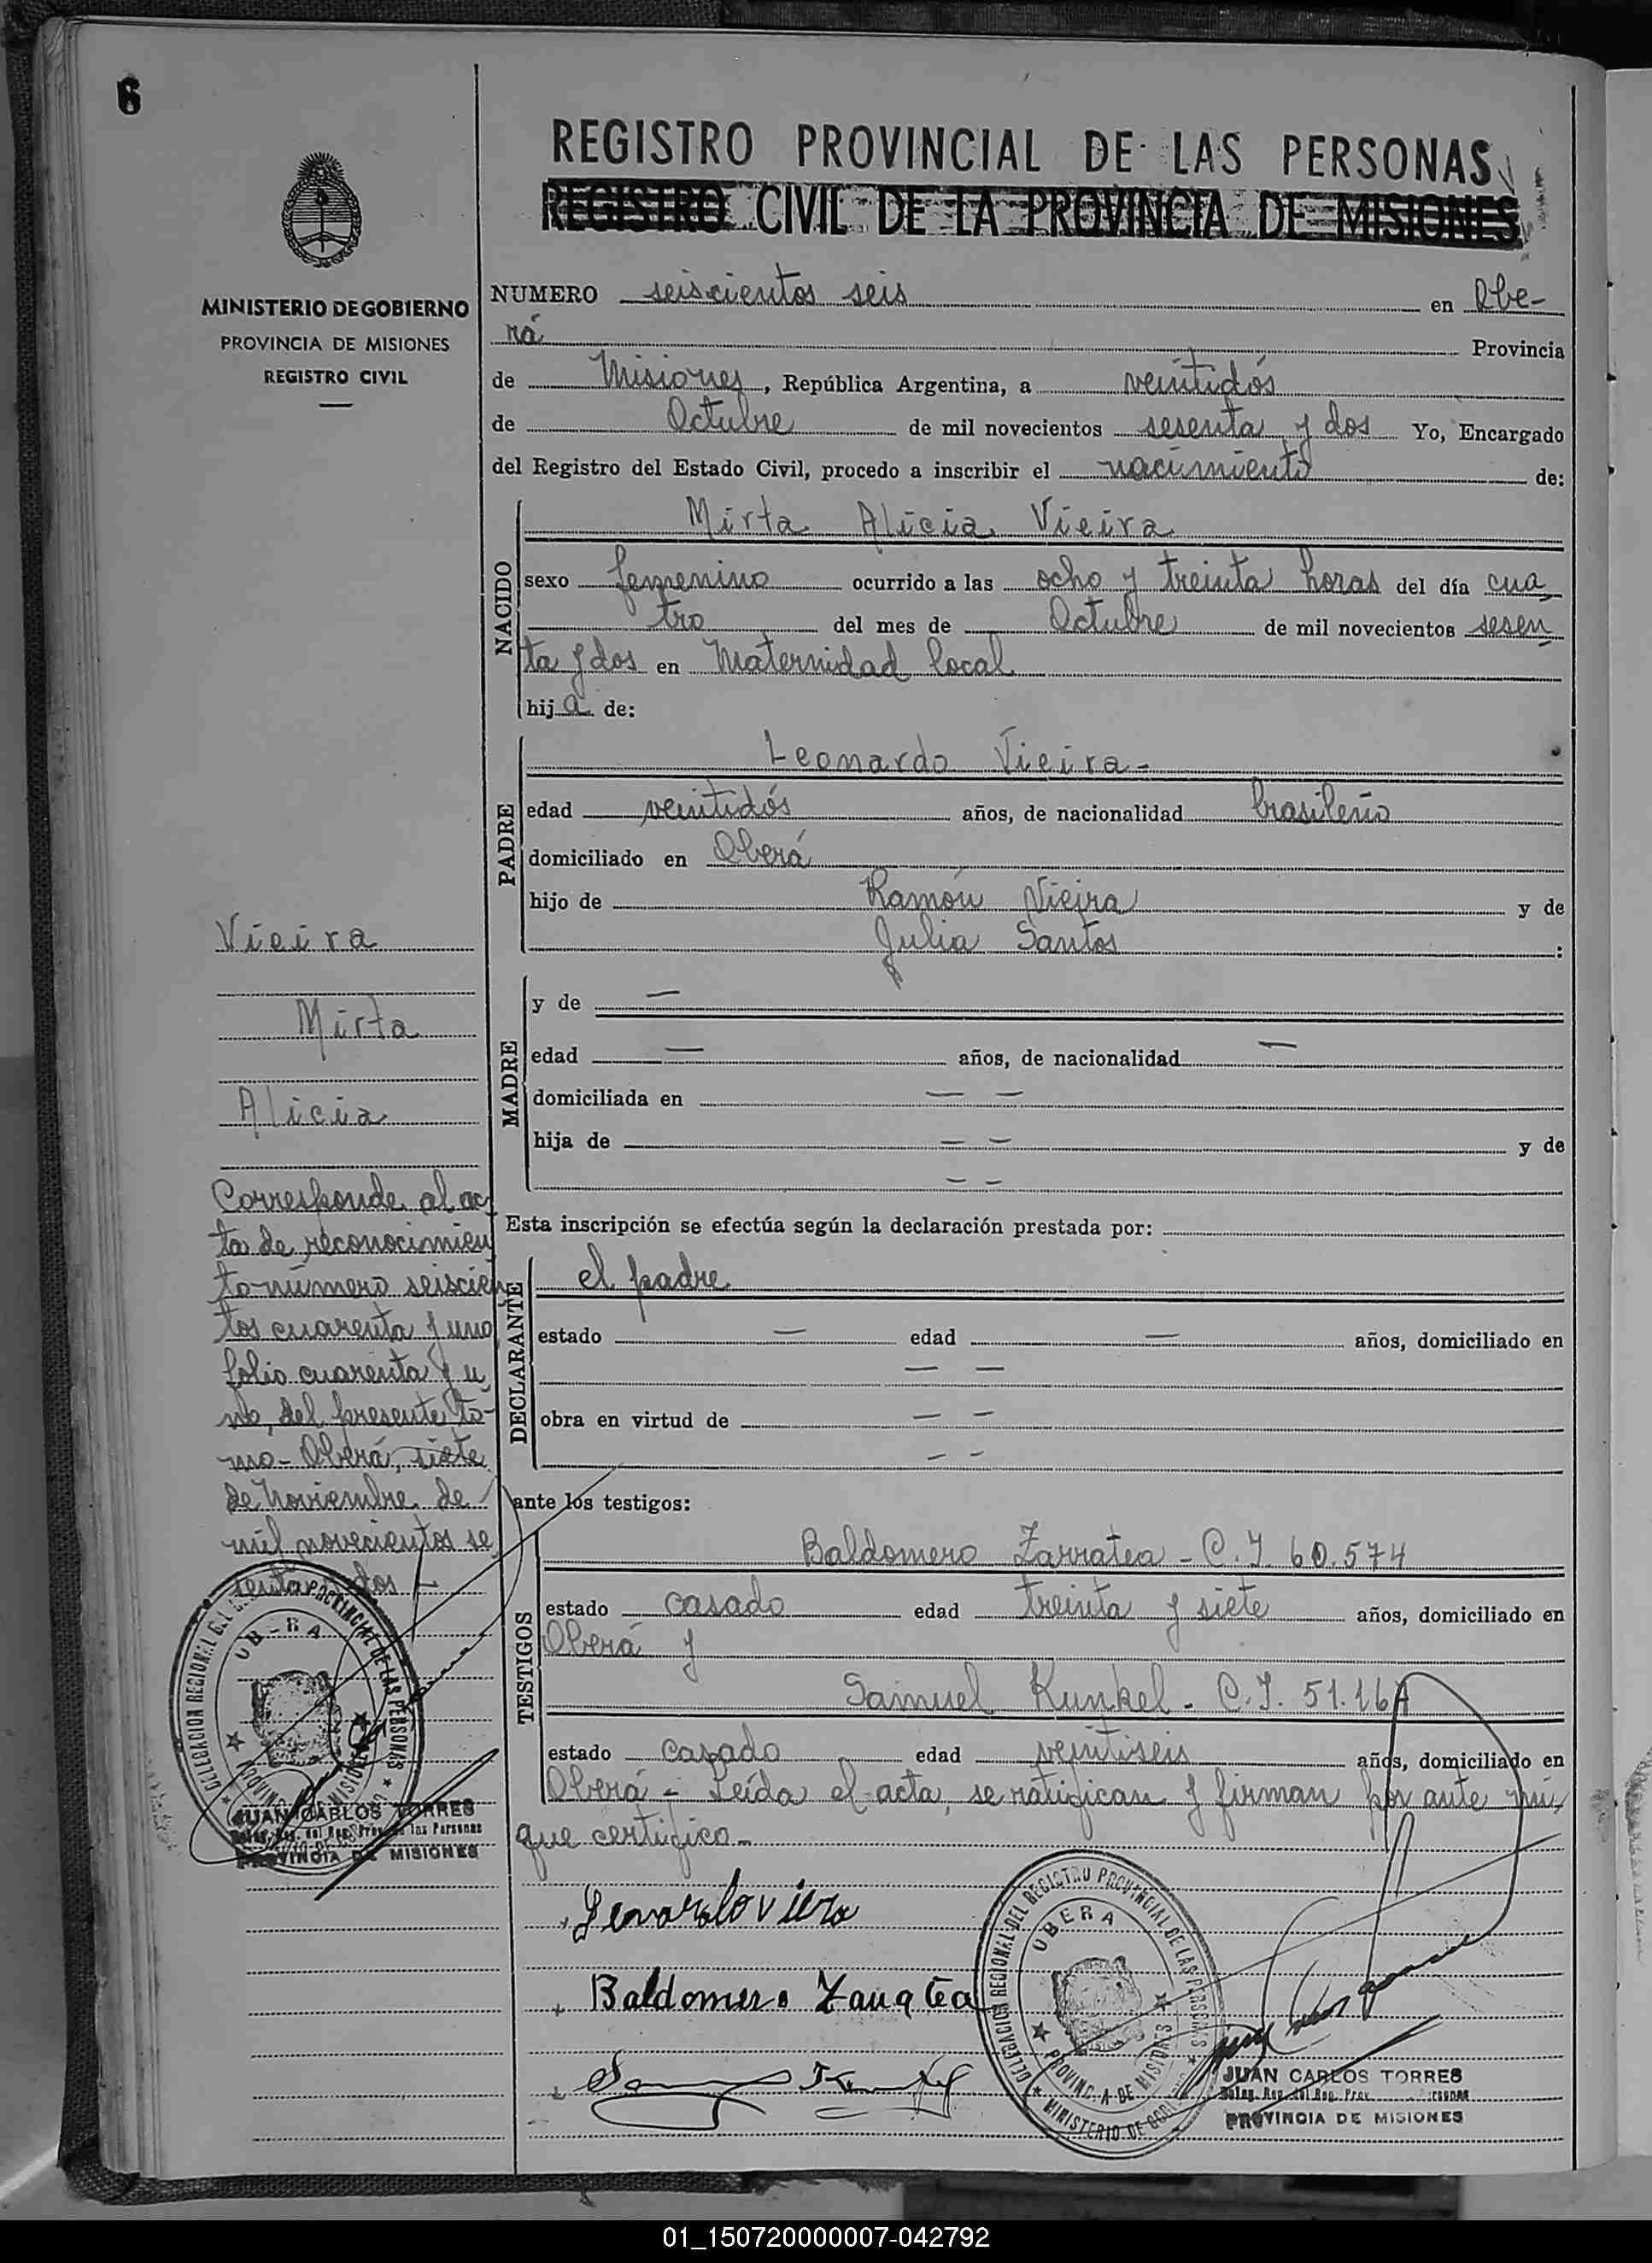 6
REGISTRO PROVINCIAL DE LAS PERSONAS
REGISTRO CIVIL DE LA PROVINCIA DE MISIONES
MINISTERIO DE GOBIERNO
PROVINCIA DE MISIONES
REGISTRO CIVIL
NUMERO seiscientos seis en Obe-
rá Provincia
de Misiones, República Argentina, a veintidós
de Octubre de mil novecientos sesenta y dos Yo, Encargado
del Registro del Estado Civil, procedo a inscribir el nacimiento de:
NACIDO
Mirta Alicia Vieira
sexo femenino ocurrido a las ocho y treinta horas del día cua
tro del mes de Octubre de mil novecientos sesen
ta y dos en Maternidad local
hija de:
PADRE
Leonardo Vieira-
edad veintidós años, de nacionalidad brasileño
domiciliado en Oberá
hijo de Ramón Vieira y de
Julia Santos :
MADRE
y de —
edad — años, de nacionalidad —
domiciliada en — —
hija de — — y de
— —
Esta inscripción se efectúa según la declaración prestada por:
DECLARANTE
el padre
estado — edad — años, domiciliado en
— —
obra en virtud de — —
— —
ante los testigos:
TESTIGOS
Baldomero Zarratea - C.I. 60.574
estado casado edad treinta y siete años, domiciliado en
Oberá y
Samuel Kunkel - C.I. 51.16
estado casado edad veintiseis años, domiciliado en
Oberá - Leída el acta, se ratifican y firman por ante mí,
que certifico-
Vieira
Mirta
Alicia
Corresponde al ac
ta de reconocimien
to número seiscien
tos cuarenta y uno
folio cuarenta y u
no, del presente to-
mo- Oberá, siete
de Noviembre de
mil novecientos se
senta y dos -
DELEGACION REGIONAL DEL REGISTRO PROVINCIAL DE LAS PERSONAS
OBERA
PROVINCIA DE MISIONES
JUAN CARLOS TORRES
Deleg. Reg. del Reg. Prov. de las Personas
PROVINCIA DE MISIONES
Leonardo viera
Baldomero Zarratea
DELEGACION REGIONAL DEL REGISTRO PROVINCIAL DE LAS PERSONAS
OBERA
PROVINCIA DE MISIONES
MINISTERIO DE GOBIERNO
JUAN CARLOS TORRES
Deleg. Reg. del Reg. Prov.
PROVINCIA DE MISIONES
01_150720000007-042792